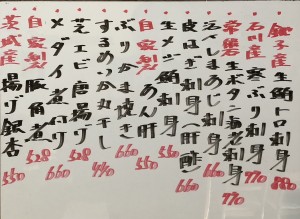 銚子産 鮪トロ刺身 880
石川産 寒ぶり刺身 770
常磐産 生ボタン海老刺身 770
・しまあじ刺身 660
・皮はぎ刺身(肝酢) 660
・生メジ鮪刺身 550
自家製 あん肝 550
・ぶりかま焼き 660
・するめいか丸干し 440
・芝エビ唐揚 528
・メダイ煮付 660
・自家製 豚角煮 528
茨城産 揚げ銀杏 550